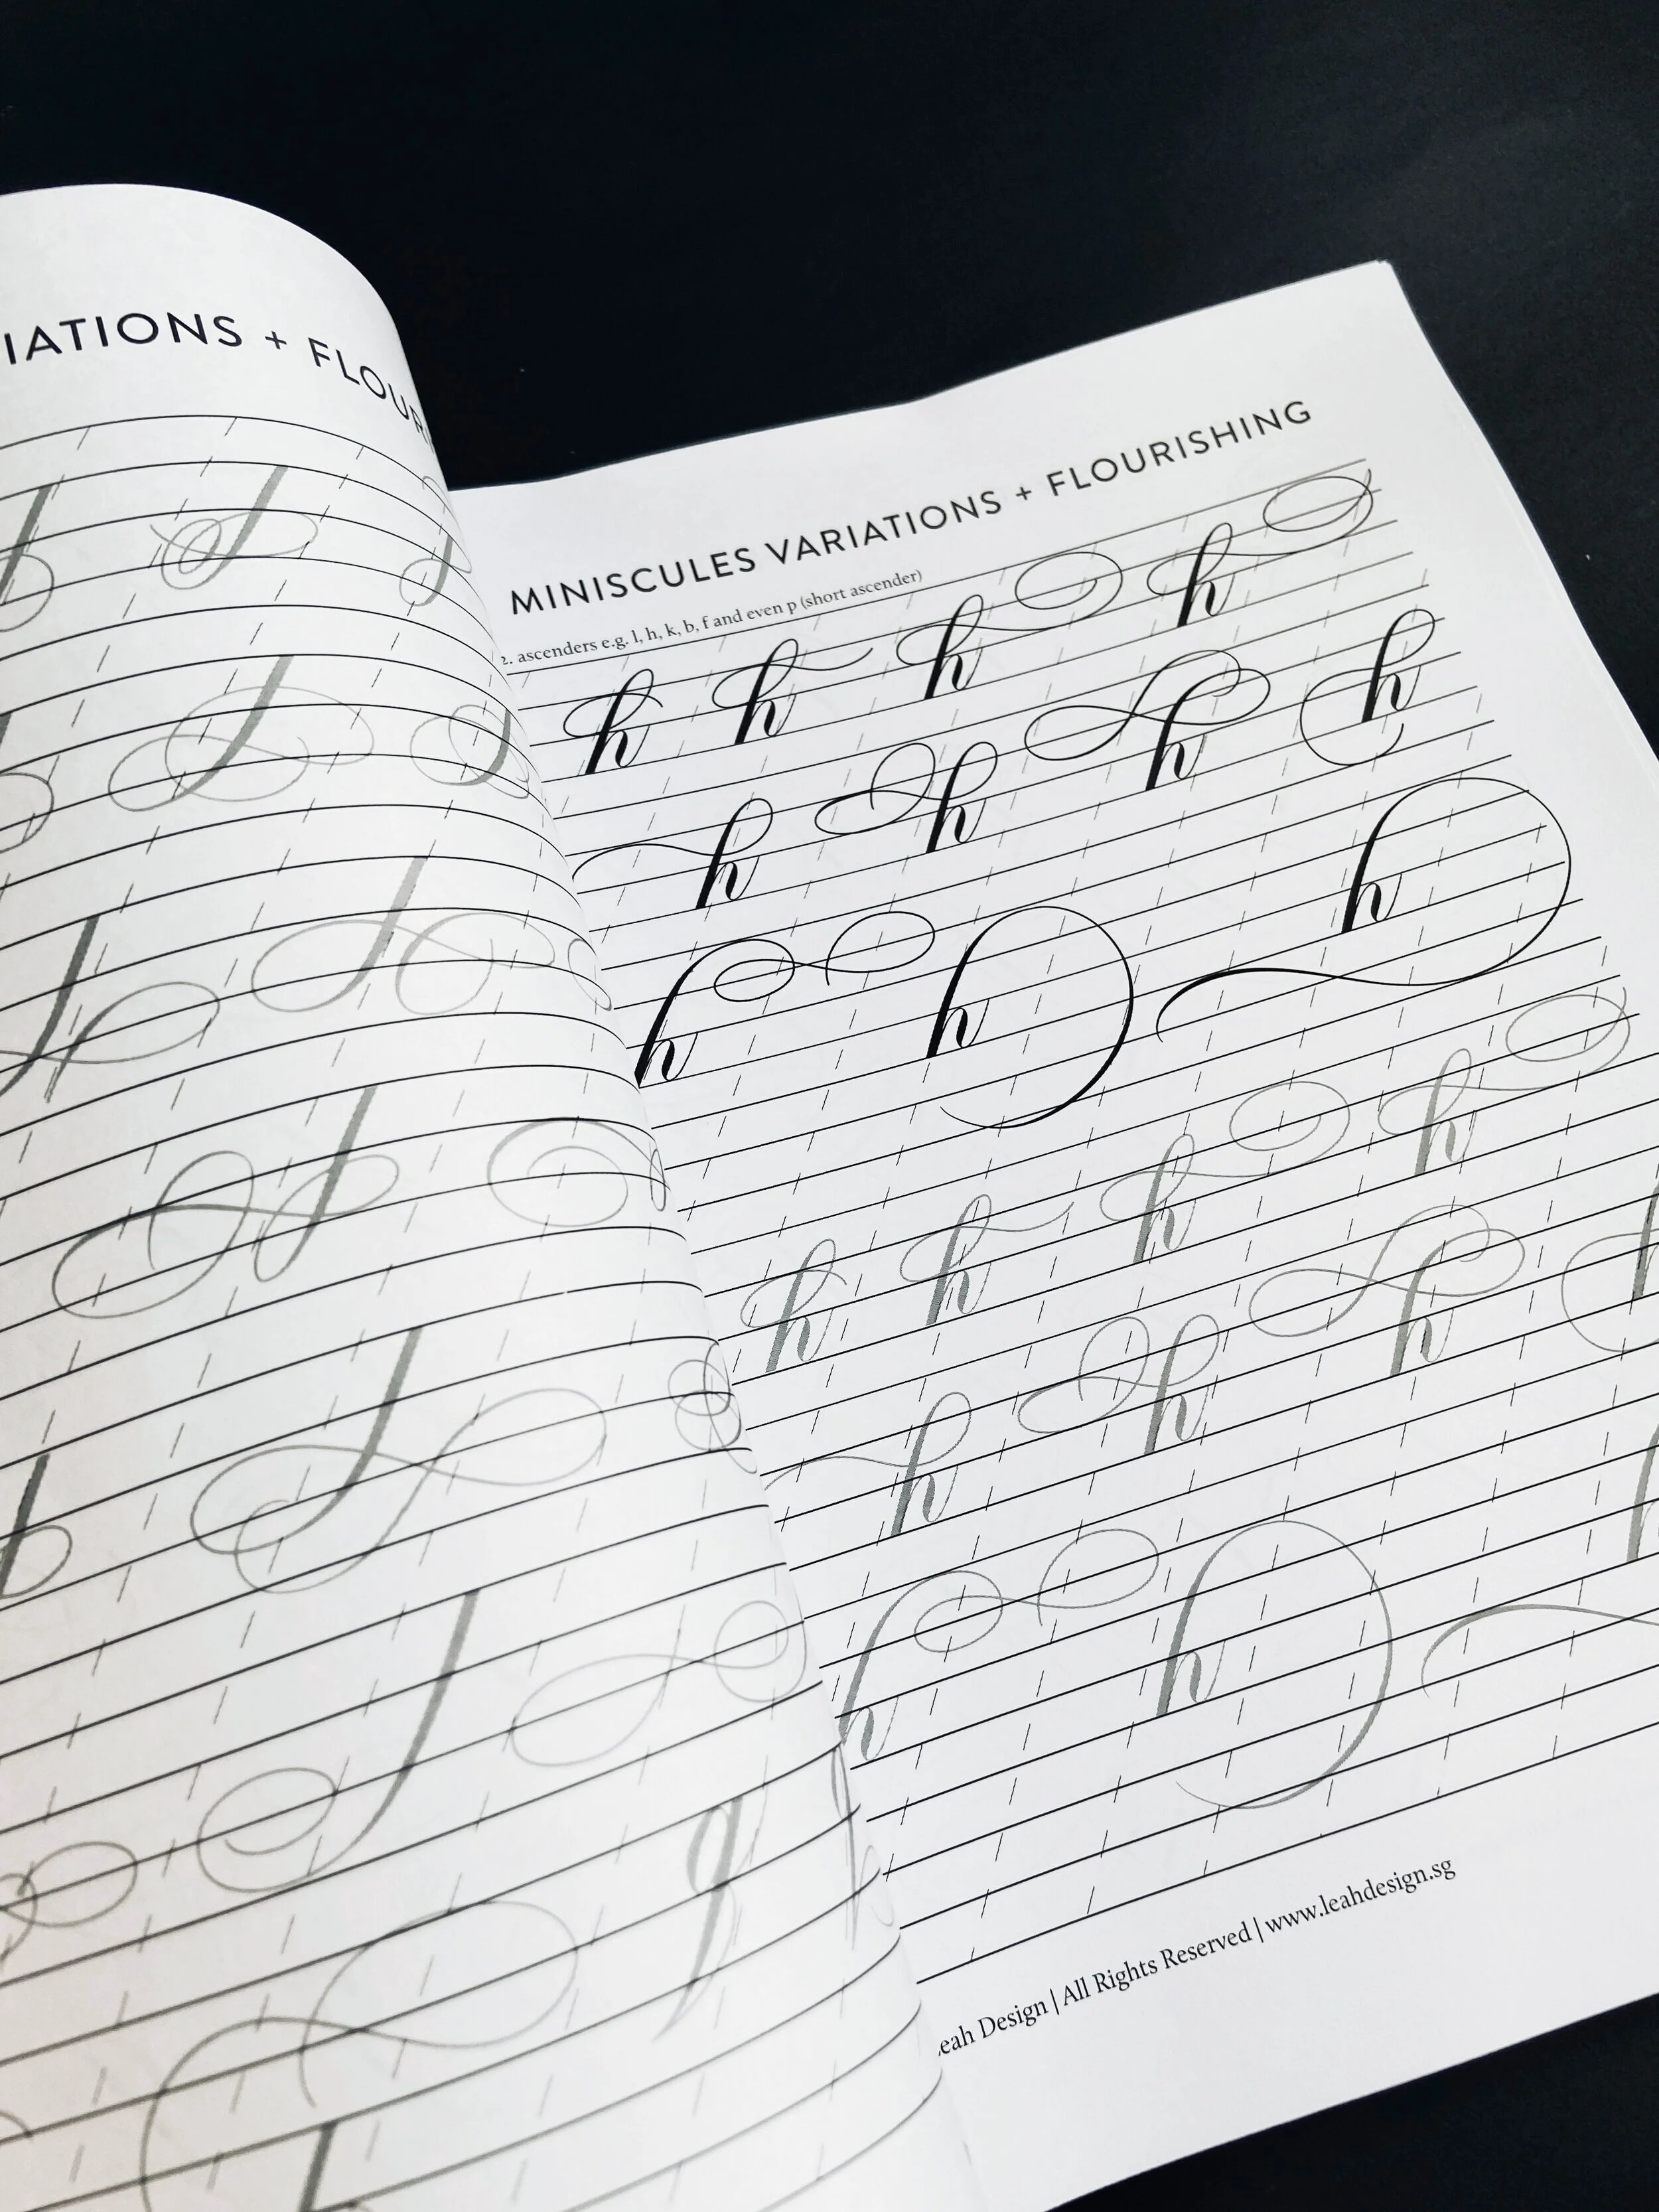 VARIATIONS + FLOUR
MINISCULES VARIATIONS + FLOURISHING
2. ascenders e.g. l, h, k, b, f and even p (short ascender)
h h h h
h h h h
h h h
h h h h
h h h
h h
eah Design | All Rights Reserved | www.leahdesign.sg